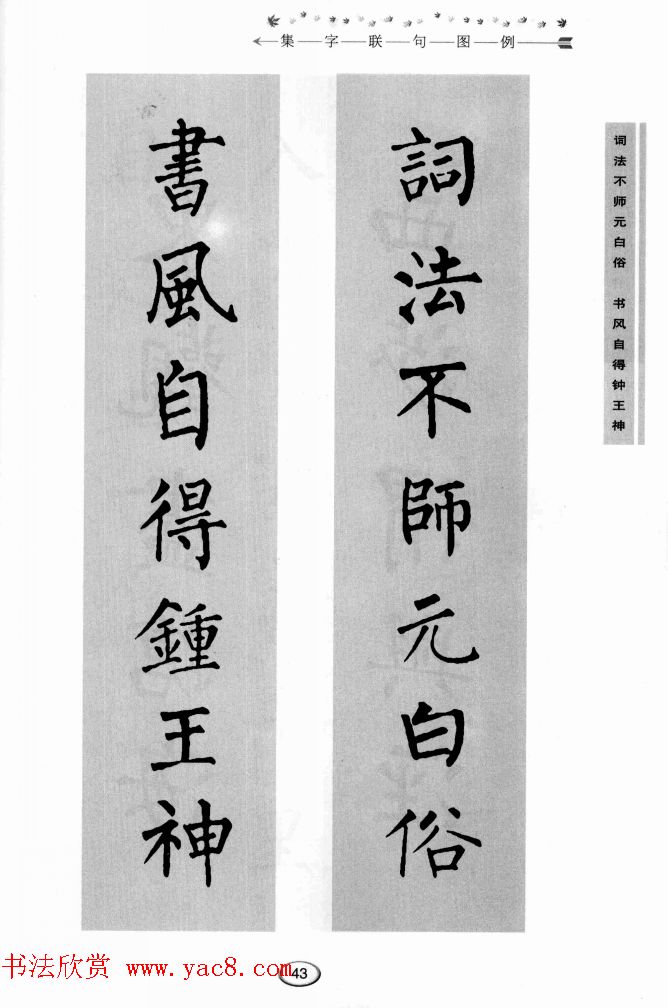 集字联句图例
詞法不師元白俗
書風自得鍾王神
词法不师元白俗 书风自得钟王神
书法欣赏 www.yac8.com
43